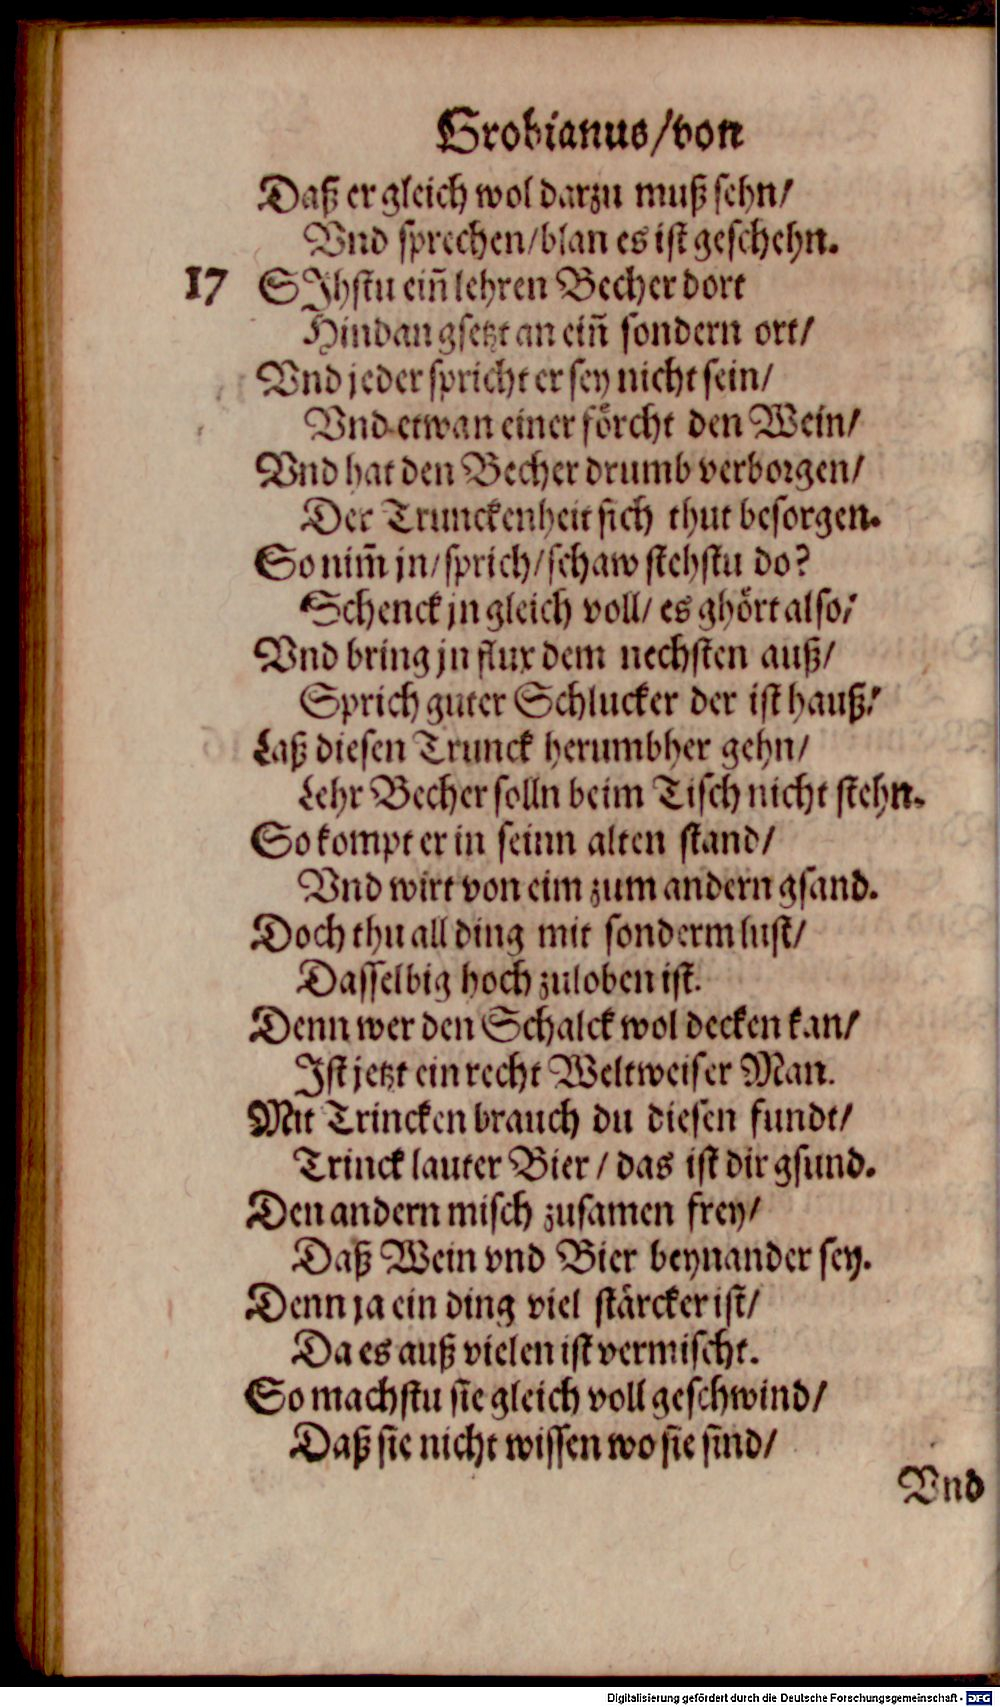 Grobianus/von
Daß er gleich wol darzu muß sehn/
Vnd sprechen/blan es ist geschehn.
17 SJhstu ein̄ lehren Becher dort
Hindan gsetzt an ein̄ sondern ort/
Vnd jeder spricht er sey nicht sein/
Vnd etwan einer förcht den Wein/
Vnd hat den Becher drumb verborgen/
Der Trunckenheit sich thut besorgen.
So nim̄ jn/sprich/schaw stehstu do?
Schenck jn gleich voll/ es ghört also/
Vnd bring jn flux dem nechsten auß/
Sprich guter Schlucker der ist hauß/
Laß diesen Trunck herumbher gehn/
Lehr Becher solln beim Tisch nicht stehn.
So kompt er in seinn alten stand/
Vnd wirt von eim zum andern gsand.
Doch thu all ding mit sonderm lust/
Dasselbig hoch zuloben ist.
Denn wer den Schalck wol decken kan/
Ist jetzt ein recht Weltweiser Man.
Mit Trincken brauch du diesen fundt/
Trinck lauter Bier / das ist dir gsund.
Den andern misch zusamen frey/
Daß Wein vnd Bier beynander sey.
Denn ja ein ding viel stärcker ist/
Da es auß vielen ist vermischt.
So machstu sie gleich voll geschwind/
Daß sie nicht wissen wo sie sind/
Vnd
Digitalisierung gefördert durch die Deutsche Forschungsgemeinschaft - DFG